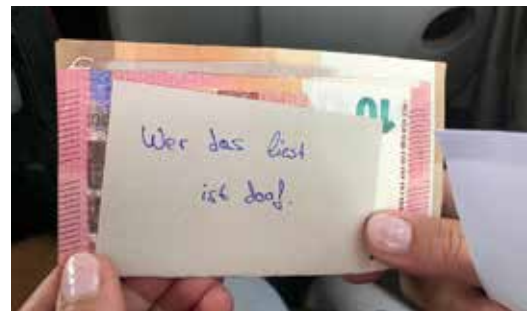 10
Wer das liest
ist doof.